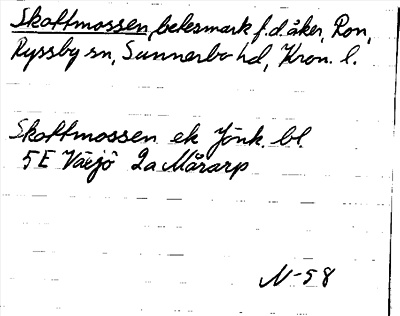 Skattmossen, betesmark f.d. åker, Ron,
Ryssby sn, Sunnerbo hd, Kron. l.
Skattmossen ek Jönk. bl.
5E Växjö 2a Mårarp
N-58